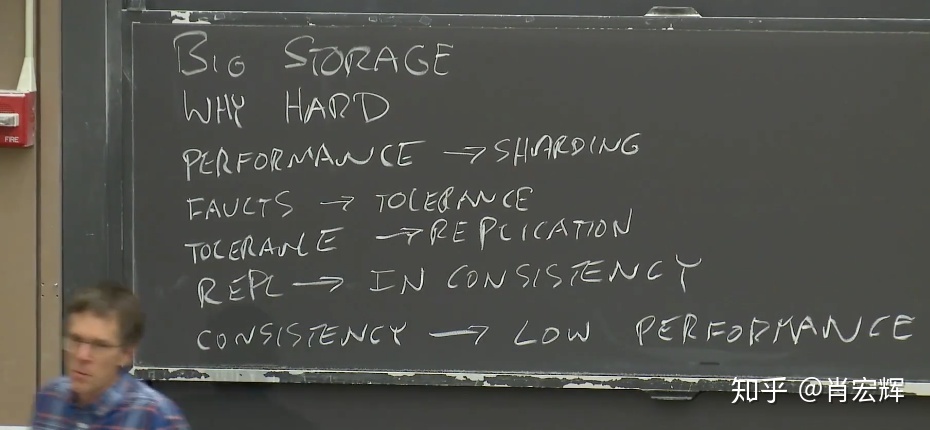 BIG STORAGE
WHY HARD
PERFORMANCE → SHARDING
FAULTS → TOLERANCE
TOLERANCE → REPLICATION
REPL → IN CONSISTENCY
CONSISTENCY → LOW PERFORMANCE
FIRE
知乎 @肖宏辉